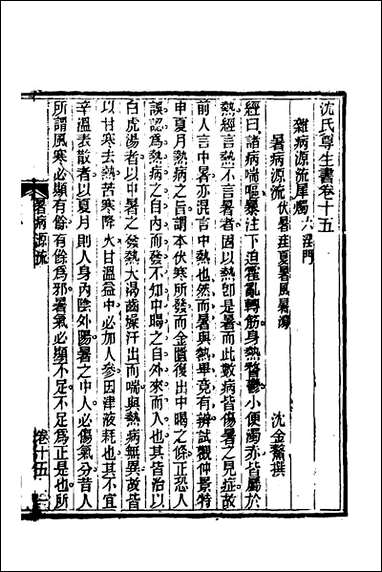 沈氏尊生書卷十五
雜病源流犀燭 六淫門
沈金鰲撰
暑病源流 伏暑 疰夏 暑風 暑瘍
經曰諸病喘嘔暴注下迫霍亂轉筋身熱瞀鬱小便濁亦皆屬於
熱經言熱不言暑者固以熱卽是暑而此數病皆傷暑之見症故
前人言中暑亦混言中熱也然而暑與熱畢竟有辨試觀仲景特
申夏月熱病之旨謂本伏寒所發而金匱復出中暍之條正恐人
誤認為熱病之自內而發不知中暍之自外來而入也其皆治以
白虎湯者以中暑之發熱大渴齒燥汗出而喘與熱病無異故皆
以甘寒去熱苦寒降火甘溫益中必加人參因津液耗也其不宜
辛溫表散者以夏月則人身內陰外陽暑之中人必傷氣分昔人
所謂風寒必顯有餘有餘為邪暑氣必顯不足不足為正是也所
暑病源流
卷十五